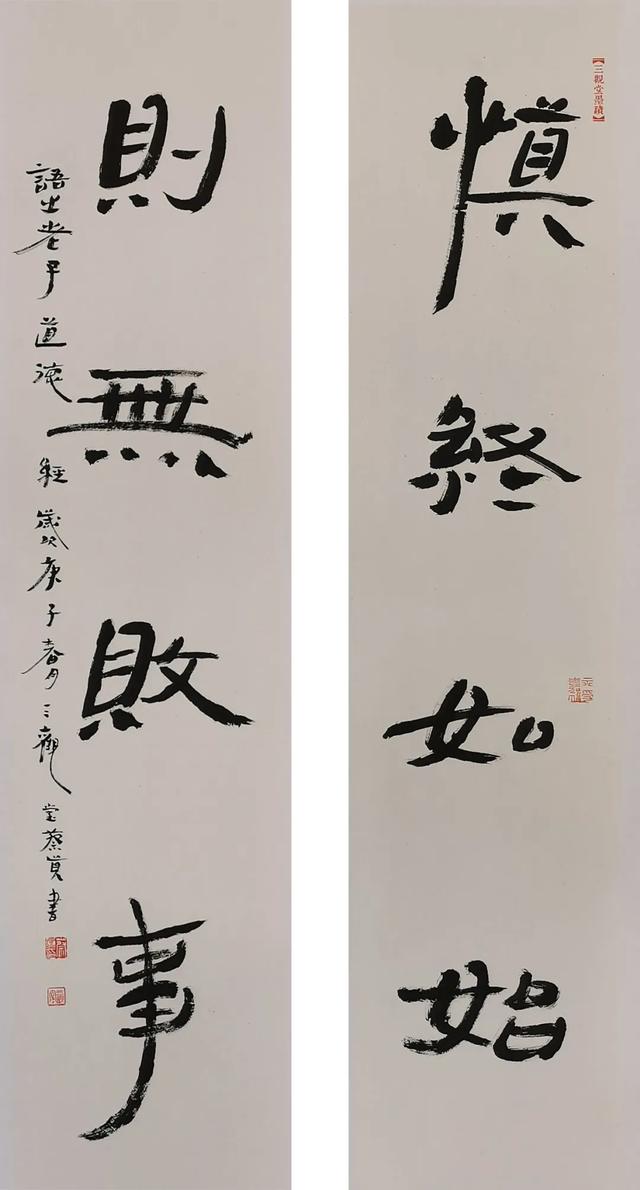 【三觀堂墨蹟】
慎終如始
則無敗事
語出老子道德經歲次庚子春月三觀堂蔡萱書